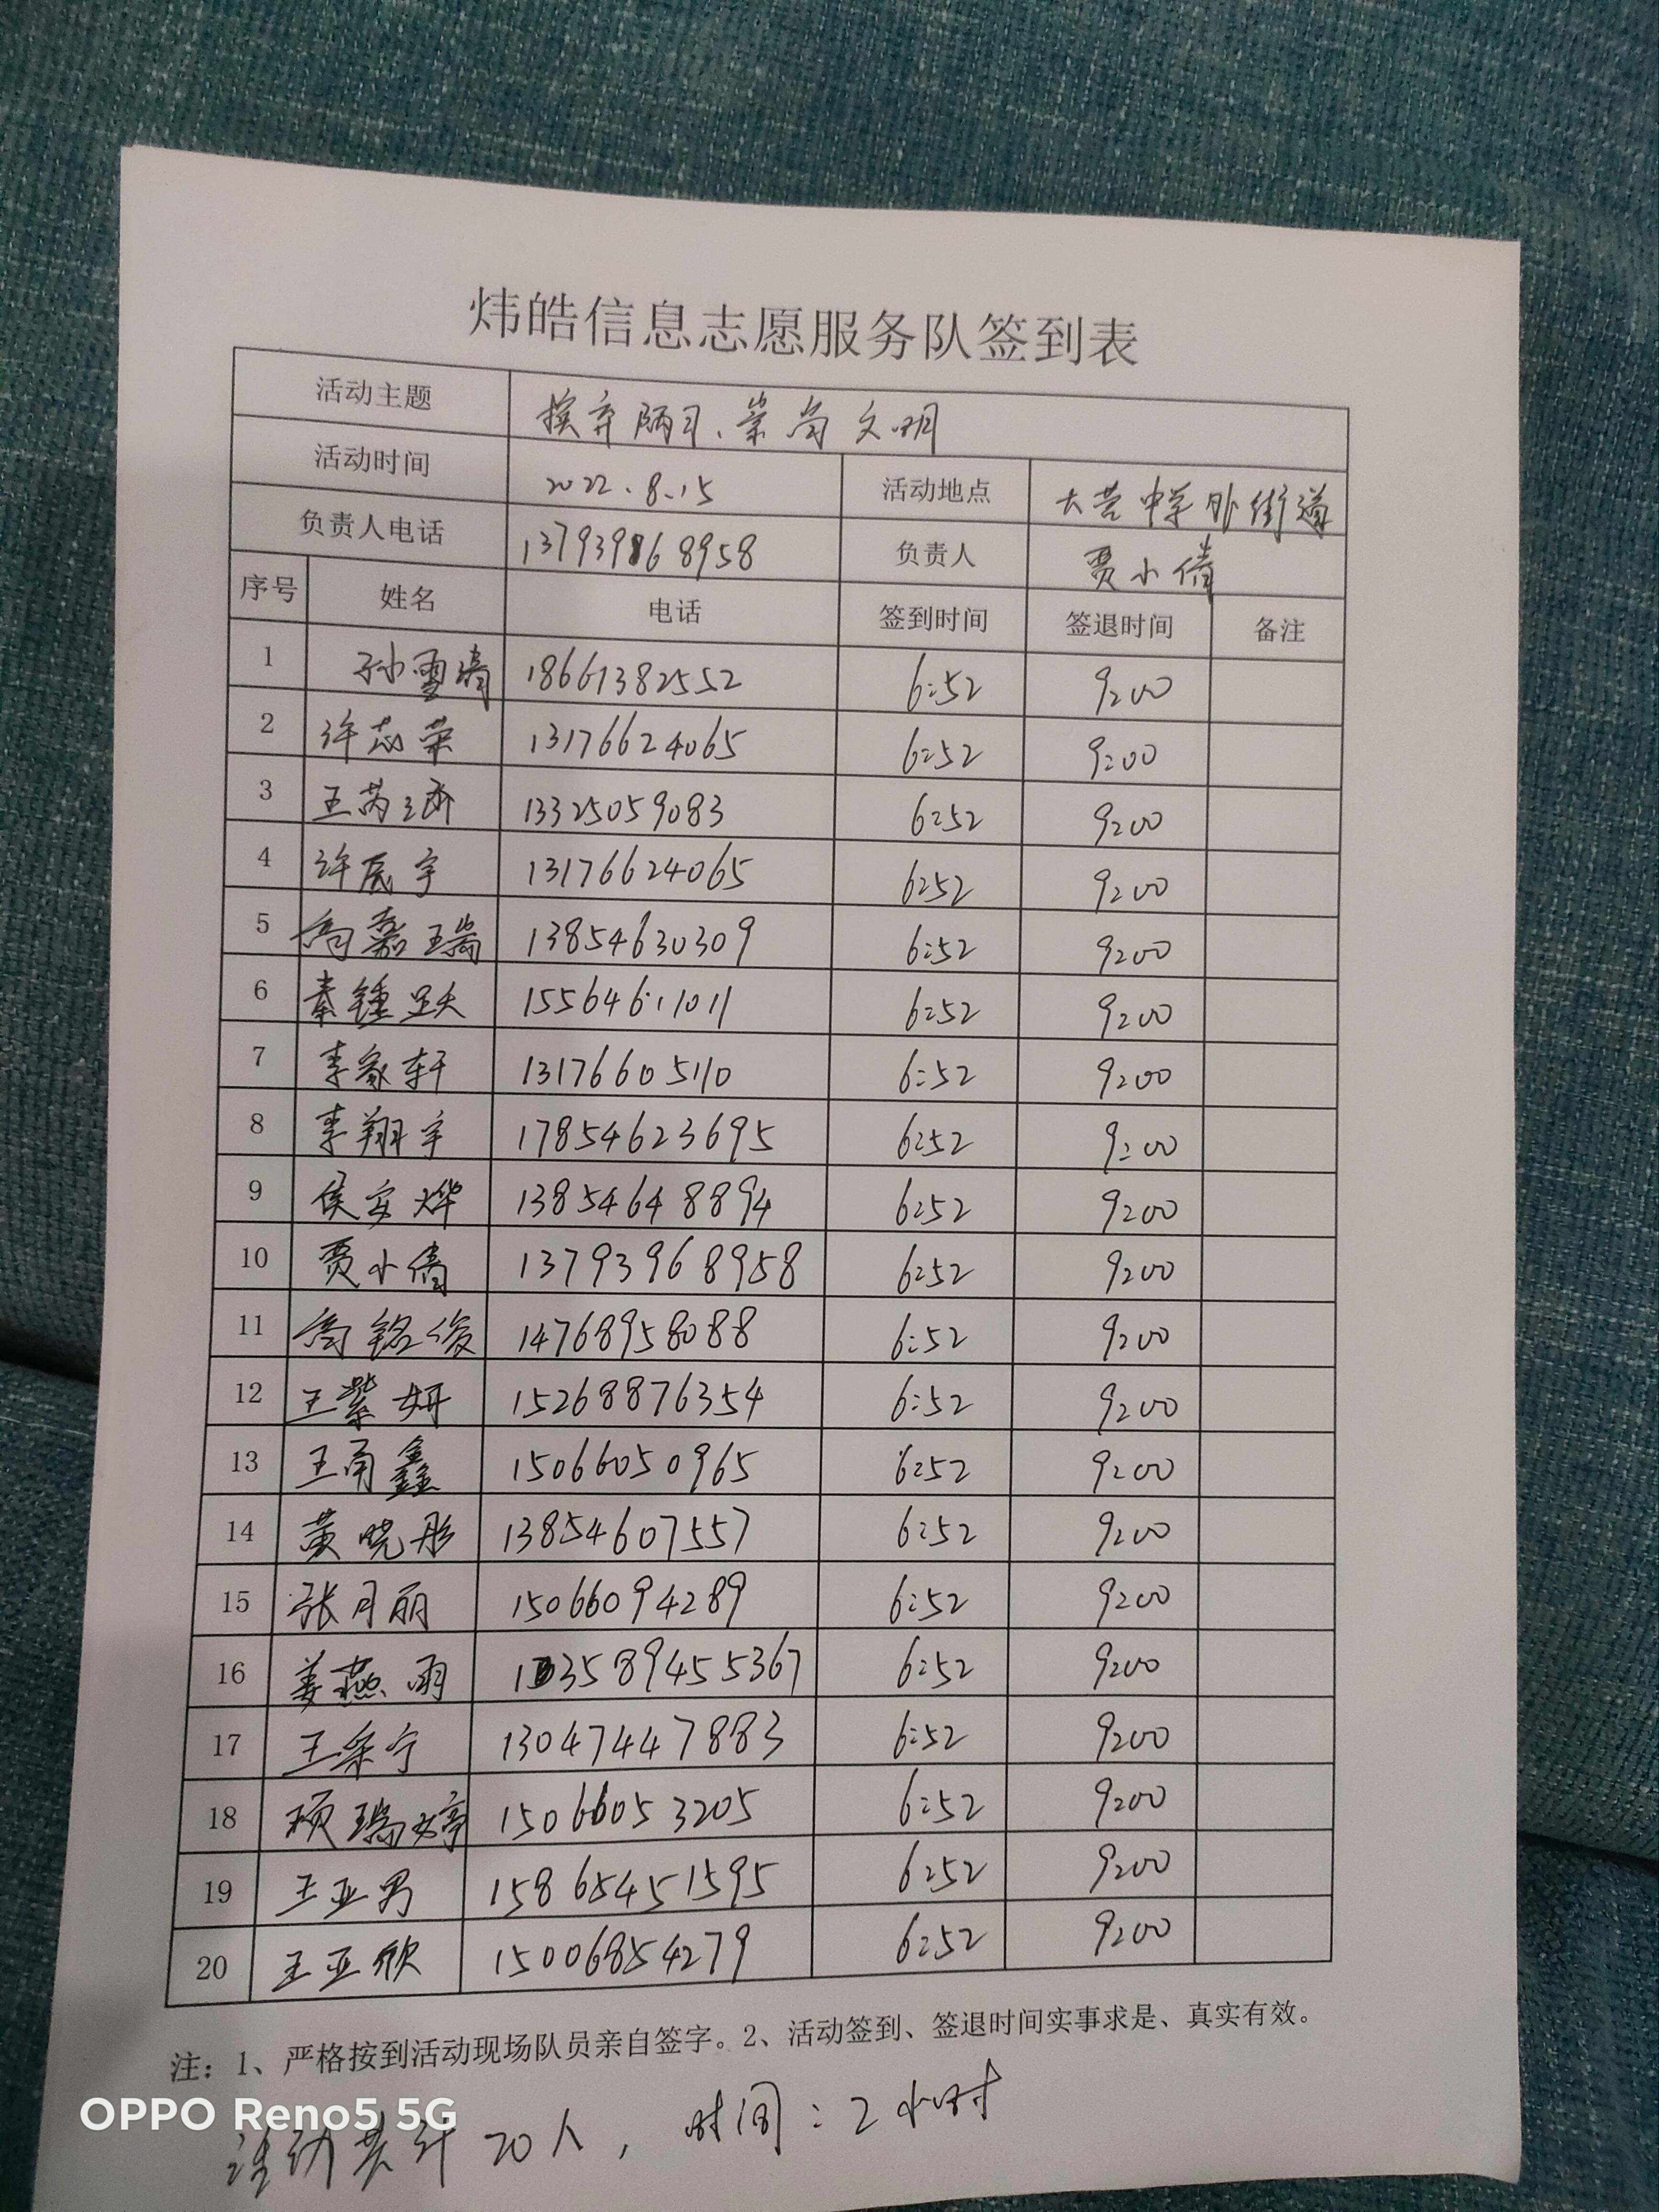 炜皓信息志愿服务队签到表
活动主题 摈弃陋习、崇尚文明
活动时间 2022.8.15 活动地点 大营中学外街道
负责人电话 13793968958 负责人 贾小倩
序号 姓名 电话 签到时间 签退时间 备注
1 孙雪清 18661382552 6:52 9:00
2 许志荣 13176624065 6:52 9:00
3 王芮 13325059083 6:52 9:00
4 许辰宇 13176624065 6:52 9:00
5 高嘉瑞 13854630309 6:52 9:00
6 秦锺跃 15564611011 6:52 9:00
7 李家轩 13176605110 6:52 9:00
8 李翔宇 17854623695 6:52 9:00
9 侯安烨 13854648894 6:52 9:00
10 贾小倩 13793968958 6:52 9:00
11 高铭俊 14768958088 6:52 9:00
12 王紫妍 15268876354 6:52 9:00
13 王甬鑫 15066050965 6:52 9:00
14 黄晓彤 13854607557 6:52 9:00
15 张月丽 15066094289 6:52 9:00
16 姜燕雨 13589455367 6:52 9:00
17 王宁 13047447883 6:52 9:00
18 项瑞婷 15066053205 6:52 9:00
19 王亚男 15865451595 6:52 9:00
20 王亚欣 15006854279 6:52 9:00
注：1、严格按到活动现场队员亲自签字。2、活动签到、签退时间实事求是、真实有效。
OPPO Reno5 5G
活动共计20人，时间：2小时